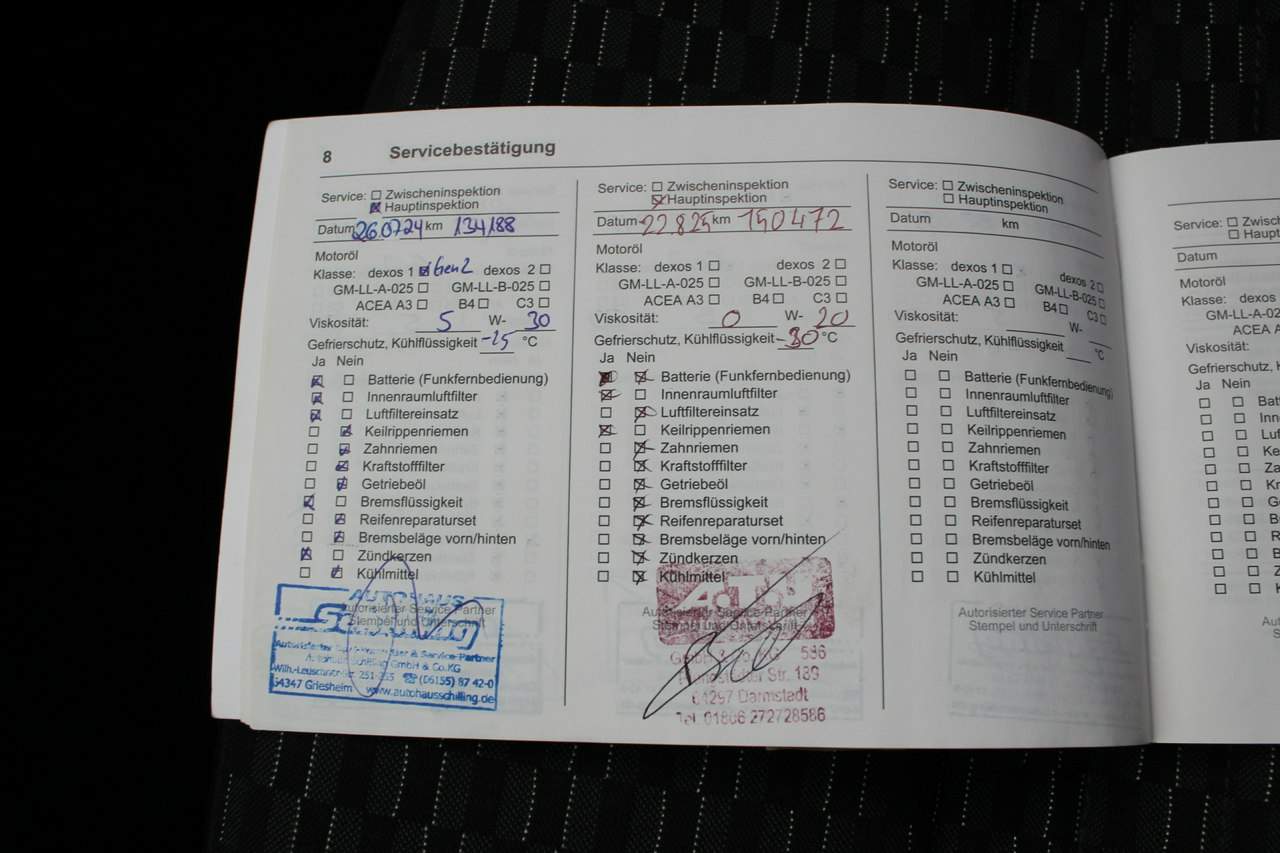 8 Servicebestätigung
Service: ☐ Zwischeninspektion
☒ Hauptinspektion
Datum 26.07.24 km 134188
Motoröl
Klasse: dexos 1 ☒ Gen2 dexos 2 ☐
GM-LL-A-025 ☐ GM-LL-B-025 ☐
ACEA A3 ☐ B4 ☐ C3 ☐
Viskosität: 5 W- 30
Gefrierschutz, Kühlflüssigkeit °C
Ja Nein
☒ ☐ Batterie (Funkfernbedienung)
☒ ☐ Innenraumluftfilter
☒ ☐ Luftfiltereinsatz
☐ ☒ Keilrippenriemen
☐ ☒ Zahnriemen
☐ ☒ Kraftstofffilter
☐ ☒ Getriebeöl
☒ ☐ Bremsflüssigkeit
☐ ☒ Reifenreparaturset
☐ ☒ Bremsbeläge vorn/hinten
☒ ☐ Zündkerzen
☐ ☒ Kühlmittel
AUTOHAUS
Autorisierter Service Partner
Stempel und Unterschrift
& Service-Partner
GmbH & Co.KG
☎ (06155) 87 42-0
64347 Griesheim www.autohausschilling.de
Service: ☐ Zwischeninspektion
☒ Hauptinspektion
Datum 22.8.25 km 150472
Motoröl
Klasse: dexos 1 ☐ dexos 2 ☐
GM-LL-A-025 ☐ GM-LL-B-025 ☐
ACEA A3 ☐ B4 ☐ C3 ☐
Viskosität: 0 W- 20
Gefrierschutz, Kühlflüssigkeit -30 °C
Ja Nein
☒ Batterie (Funkfernbedienung)
☒ ☐ Innenraumluftfilter
☐ ☒ Luftfiltereinsatz
☒ ☐ Keilrippenriemen
☐ ☒ Zahnriemen
☐ ☒ Kraftstofffilter
☐ ☒ Getriebeöl
☐ ☒ Bremsflüssigkeit
☐ ☒ Reifenreparaturset
☐ ☒ Bremsbeläge vorn/hinten
☐ ☒ Zündkerzen
☐ ☒ Kühlmittel
A.T.U
Autorisierter Service Partner
Stempel und Unterschrift
536
Str. 139
64297 Darmstadt
Tel. 01806 272728586
Service: ☐ Zwischeninspektion
☐ Hauptinspektion
Datum km
Motoröl
Klasse: dexos 1 ☐ dexos 2 ☐
GM-LL-A-025 ☐ GM-LL-B-025 ☐
ACEA A3 ☐ B4 ☐ C3 ☐
Viskosität: W-
Gefrierschutz, Kühlflüssigkeit °C
Ja Nein
☐ ☐ Batterie (Funkfernbedienung)
☐ ☐ Innenraumluftfilter
☐ ☐ Luftfiltereinsatz
☐ ☐ Keilrippenriemen
☐ ☐ Zahnriemen
☐ ☐ Kraftstofffilter
☐ ☐ Getriebeöl
☐ ☐ Bremsflüssigkeit
☐ ☐ Reifenreparaturset
☐ ☐ Bremsbeläge vorn/hinten
☐ ☐ Zündkerzen
☐ ☐ Kühlmittel
Autorisierter Service Partner
Stempel und Unterschrift
Service: ☐ Zwisch
☐ Haupt
Datum
Motoröl
Klasse: dexos
GM-LL-A-02
ACEA A
Viskosität:
Gefrierschutz, K
Ja Nein
☐ ☐ Bat
☐ ☐ Inn
☐ ☐ Luf
☐ ☐ Ke
☐ ☐ Za
☐ ☐ Kr
☐ ☐ G
☐ ☐ B
☐ ☐ R
☐ ☐ B
☐ ☐ Z
☐ ☐ K